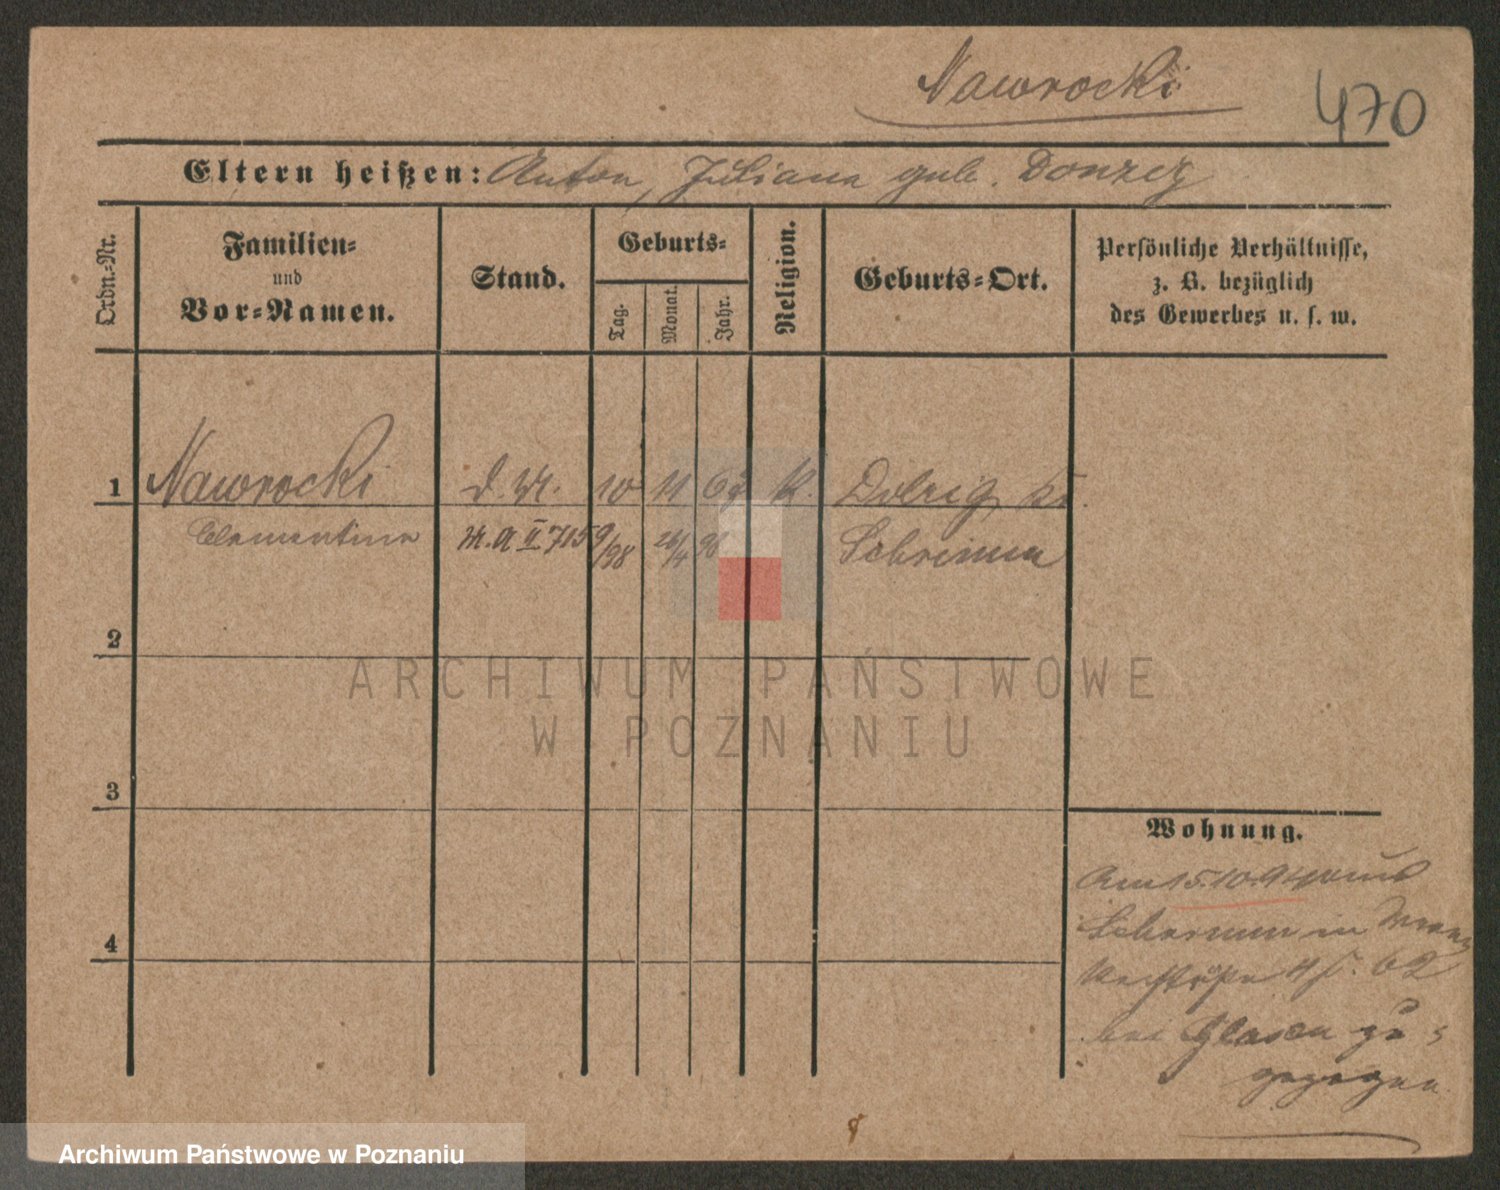 Nawrocki
470
Eltern heißen: Anton, Juliana geb. Donzig
Ordn.-Nr.
Familien-
und
Vor-Namen.
Stand.
Geburts-
Tag.
Monat.
Jahr.
Religion.
Geburts-Ort.
Persönliche Verhältnisse,
z. B. bezüglich
des Gewerbes u. s. w.
1 Nawrocki d. M. 10 11 67 K. Dolzig Kr.
Clementine M. A II 715 9/98 26/4 98 Schrimm
2
3
4
Wohnung.
Am 15.10.94 aus
Schrimm in
62
bei Glasen zu-
gezogen.
ARCHIWUM PAŃSTWOWE
W POZNANIU
Archiwum Państwowe w Poznaniu